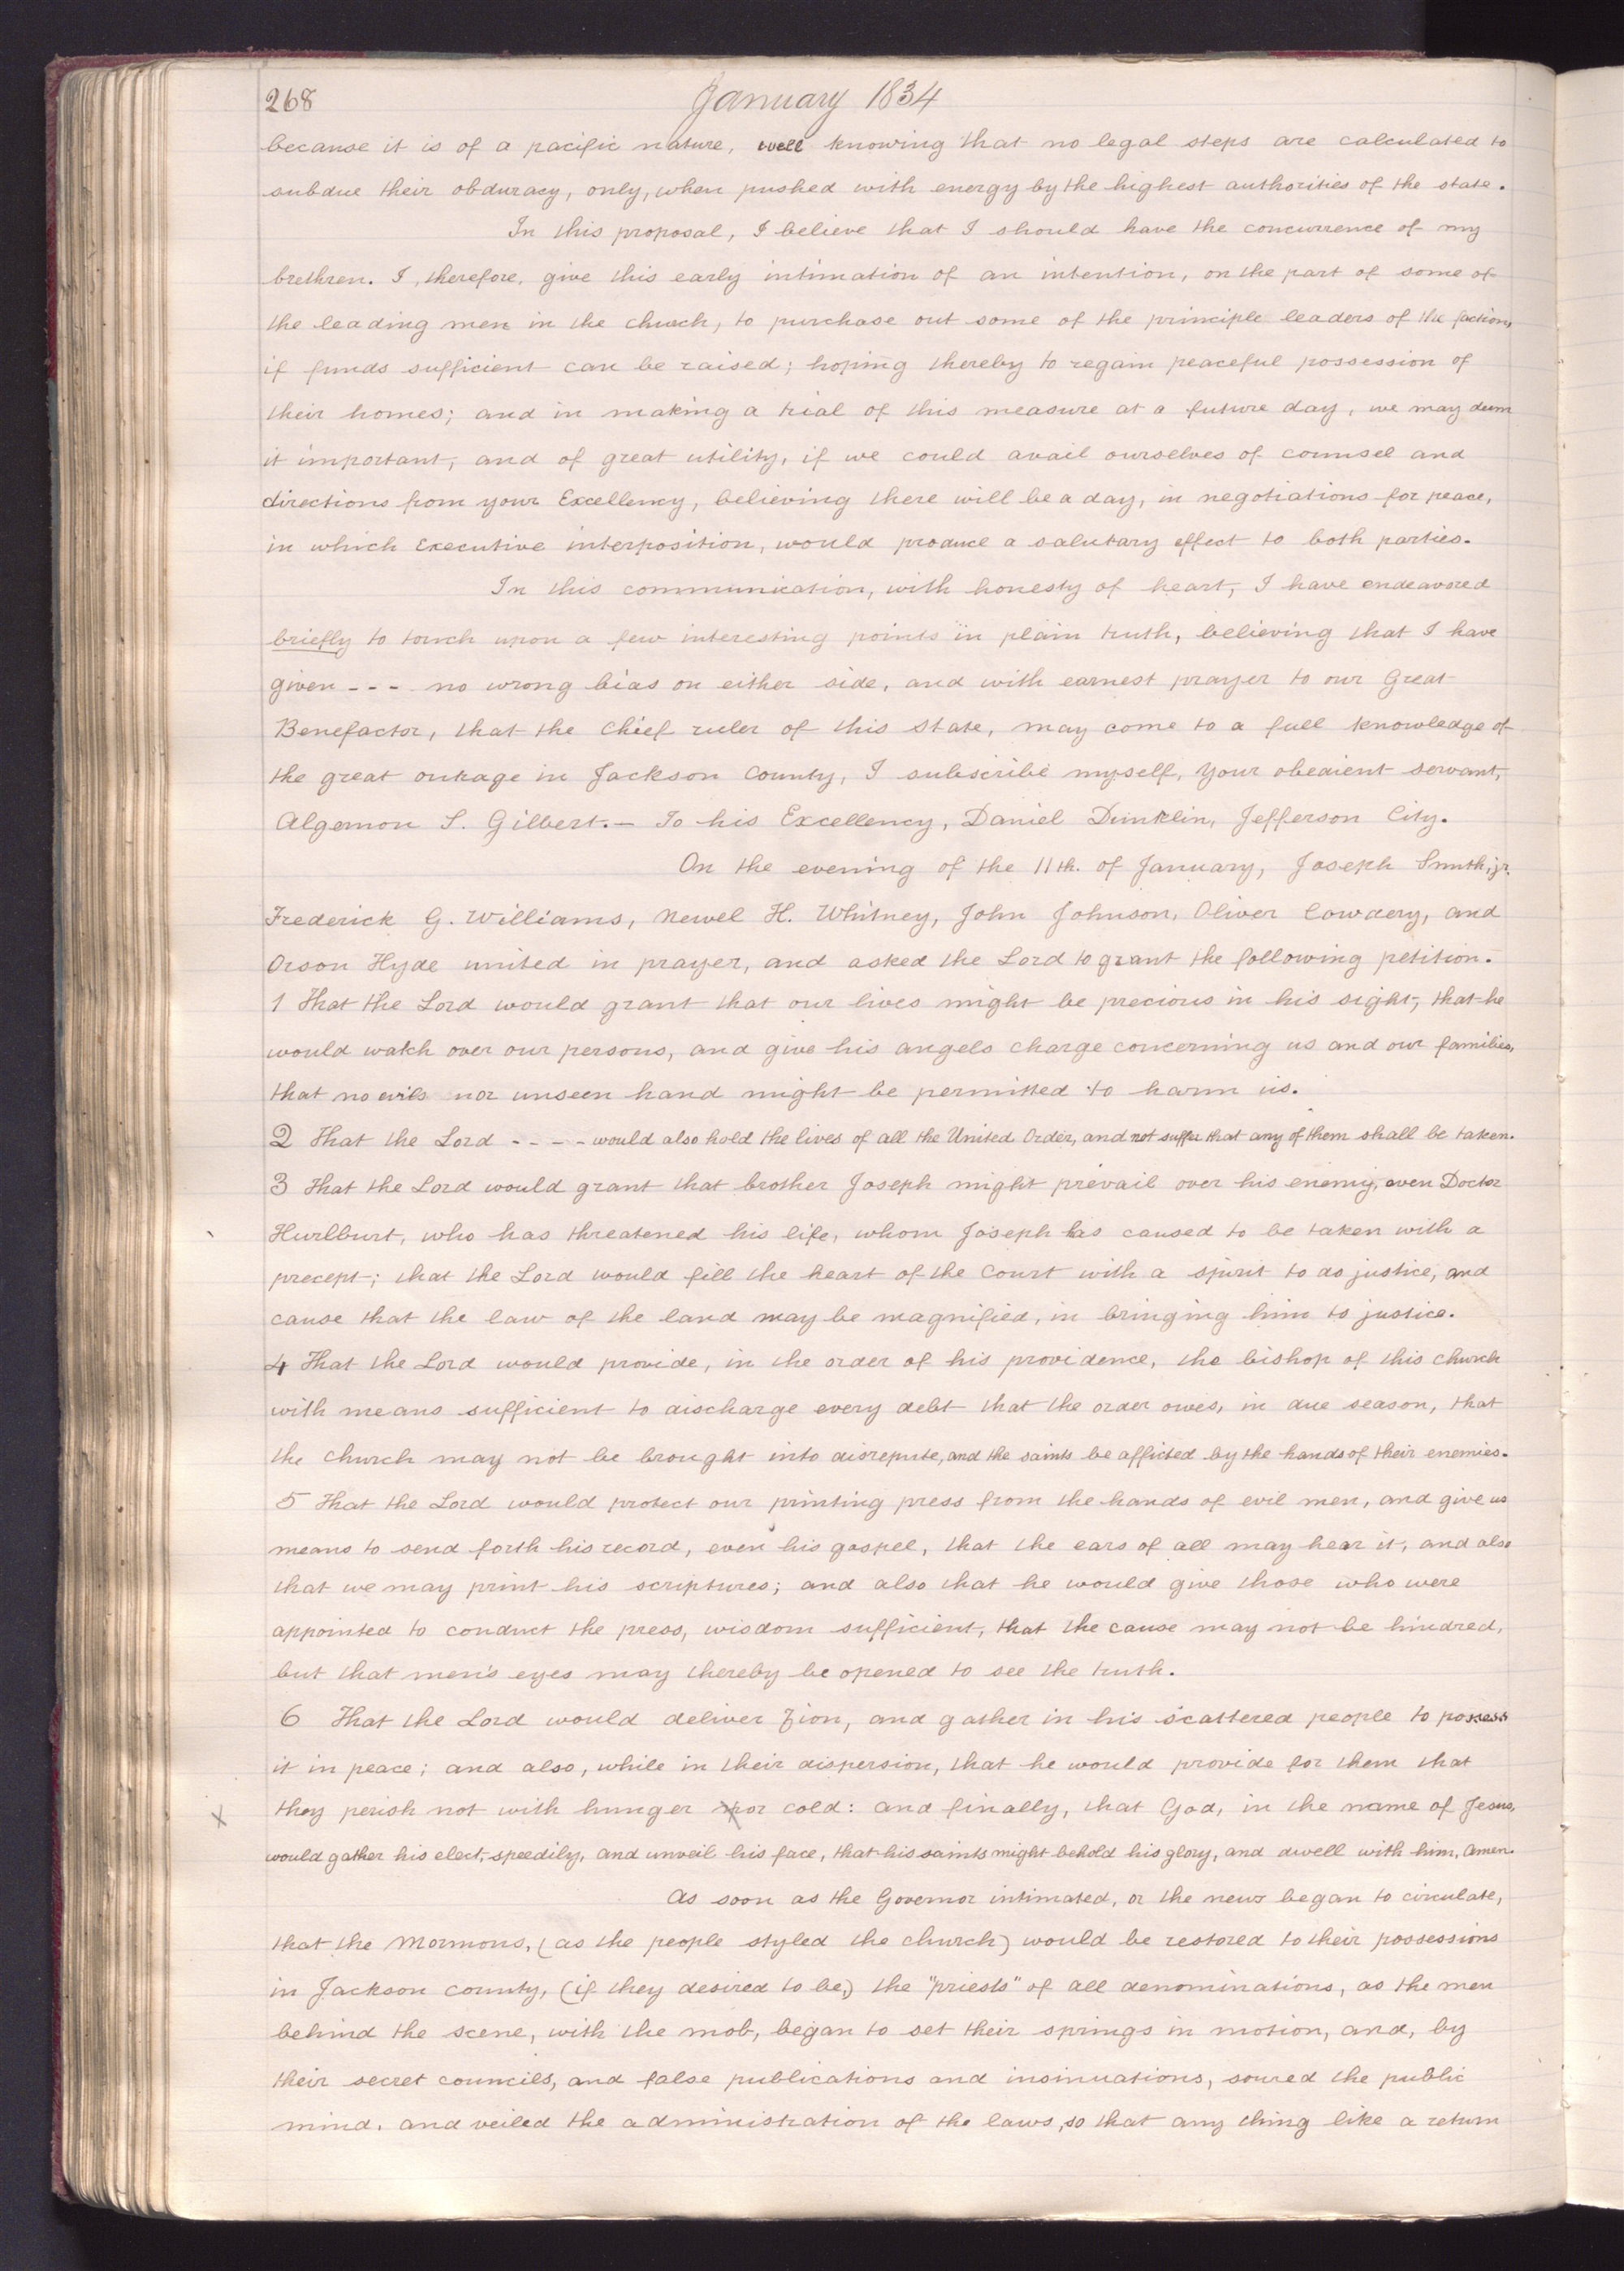 268
January 1834
because it is of a pacific nature, well knowing that no legal steps are calculated to
subdue their obduracy, only, when pushed with energy by the highest authorities of the state.
In this proposal, I believe that I should have the concurrence of my
brethren. I, therefore, give this early intimation of an intention, on the part of some of
the leading men in the church, to purchase out some of the principle leaders of the faction,
if funds sufficient can be raised; hoping thereby to regain peaceful possession of
their homes; and in making a trial of this measure at a future day, we may deem
it important, and of great utility, if we could avail ourselves of counsel and
directions from your Excellency, believing there will be a day, in negotiations for peace,
in which Executive interposition, would produce a salutary effect to both parties.
In this communication, with honesty of heart, I have endeavored
briefly to touch upon a few interesting points in plain truth, believing that I have
given - - - no wrong bias on either side, and with earnest prayer to our Great
Benefactor, that the Chief ruler of this State, may come to a full knowledge of
the great outrage in Jackson County, I subscribe myself, your obedient servant,
Algernon S. Gilbert.— To his Excellency, Daniel Dunklin, Jefferson City.
On the evening of the 11th. of January, Joseph Smith, jr.
Frederick G. Williams, Newel H. Whitney, John Johnson, Oliver Cowdery, and
Orson Hyde united in prayer, and asked the Lord to grant the following petition.
1 That the Lord would grant that our lives might be precious in his sight, that he
would watch over our persons, and give his angels charge concerning us and our families,
that no evils nor unseen hand might be permitted to harm us.
2 That the Lord - - - - would also hold the lives of all the United Order, and not suffer that any of them shall be taken.
3 That the Lord would grant that brother Joseph might prevail over his enemy, even Doctor
Hurlburt, who has threatened his life, whom Joseph has caused to be taken with a
precept; that the Lord would fill the heart of the Court with a spirit to do justice, and
cause that the law of the land may be magnified, in bringing him to justice.
4 That the Lord would provide, in the order of his providence, the bishop of this church
with means sufficient to discharge every debt that the order owes, in due season, that
the church may not be brought into disrepute, and the saints be afflicted by the hands of their enemies.
5 That the Lord would protect our printing press from the hands of evil men, and give us
means to send forth his record, even his gospel, that the ears of all may hear it, and also
that we may print his scriptures; and also that he would give those who were
appointed to conduct the press, wisdom sufficient, that the cause may not be hindred,
but that men's eyes may thereby be opened to see the truth.
6 That the Lord would deliver Zion, and gather in his scattered people to possess
it in peace; and also, while in their dispersion, that he would provide for them that
X they perish not with hunger nor cold: and finally, that God, in the name of Jesus,
would gather his elect, speedily, and unveil his face, that his saints might behold his glory, and dwell with him, Amen.
As soon as the Governor intimated, or the news began to circulate,
that the Mormons, (as the people styled the church) would be restored to their possessions
in Jackson county, (if they desired to be,) the "priests" of all denominations, as the men
behind the scene, with the mob, began to set their springs in motion, and, by
their secret councils, and false publications and insinuations, soured the public
mind, and veiled the administration of the laws, so that any thing like a return